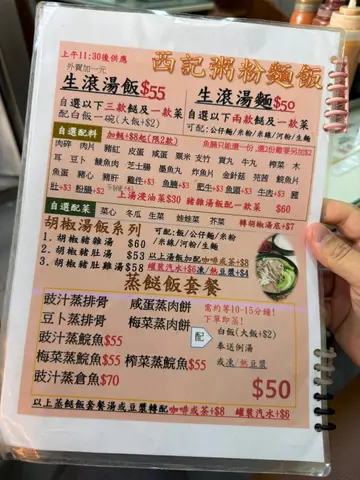 上午11:30後供應
西記粥粉麵飯
外賣加一元
生滾湯飯$55
生滾湯麵$50
自選以下三款餸及一款菜
配白飯一碗(大飯+$2)
自選以下兩款餸及一款菜
可配:公仔麵/米粉/米線/河粉/生麵
自選配料 加餸+$8起(限2款)
魚腩只能選一份,選2份需要另加$2
肉碎 肉片 豬紅 皮蛋 咸蛋 粟米 支竹 貢丸 牛丸 榨菜 木
耳 豆卜 鯪魚肉 芝士腸 墨魚丸 炸魚片 金針菇 菀茜 鯇魚片
魚蛋 豬心 豬肝 雞件+$3 魚腩+$5 肥牛+$3 魚面+$3 牛肉+$3 豬
肚+$3 粉腸+$2
上湯浸油菜$30 豬雜湯飯配一款菜 $60
自選配菜 菜心 冬瓜 生菜 娃娃菜 芥菜 轉胡椒湯底+$7
胡椒湯飯系列
可配:飯/公仔麵/米粉
/米線/河粉/生麵
1. 胡椒豬雜湯 $60
2. 胡椒豬肚湯 $53
3. 胡椒豬肚雞湯 $58
以上湯飯加配咖啡或茶+$8
罐裝汽水+$6凍/熱豆漿+$4
蒸餸飯套餐
豉汁蒸排骨 咸蛋蒸肉餅
豆卜蒸排骨 梅菜蒸肉餅
豉汁蒸鯇魚$55
梅菜蒸鯇魚$55 榨菜蒸鯇魚$55
豉汁蒸倉魚$70
需約等10-15分鐘!
下單即蒸!
配
白飯(大飯+$2)
奉送例湯
或凍/熱豆漿
$50
以上蒸餸飯套餐湯或豆漿轉配咖啡或茶+$8 罐裝汽水+$6